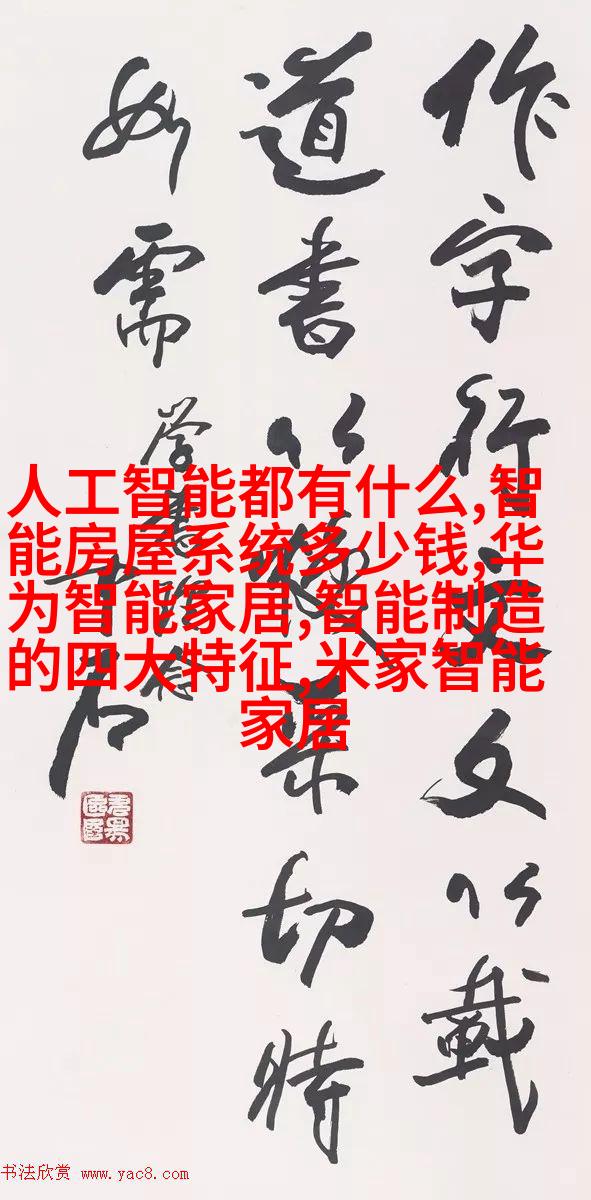 作字行文文以載
道書以焕采切時
如需
人工智能都有什么,智
能房屋系统多少钱,华
为智能家居,智能制造
的四大特征,米家智能
家居
书法欣赏 www.yac8.com